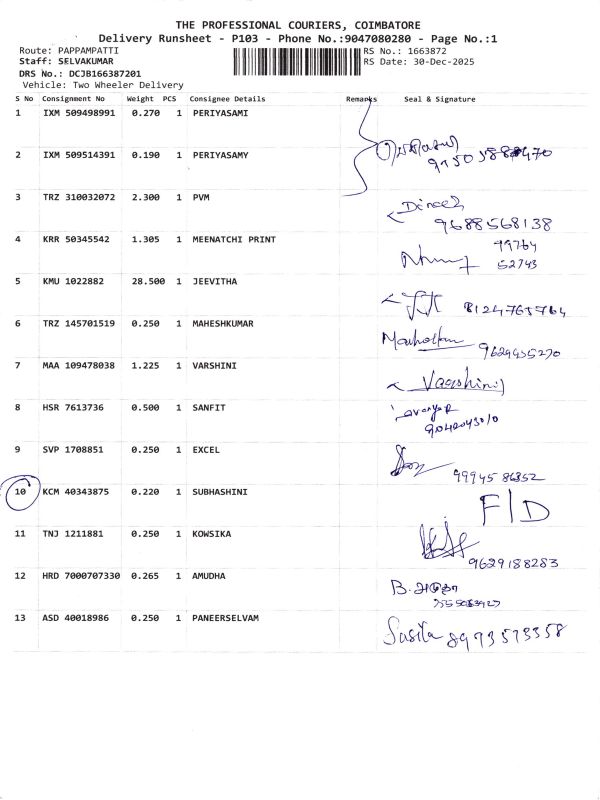 THE PROFESSIONAL COURIERS, COIMBATORE
Delivery Runsheet - P103 - Phone No.:9047080280 - Page No.:1
Route: PAPPAMPATTI RS No.: 1663872
Staff: SELVAKUMAR RS Date: 30-Dec-2025
DRS No.: DCJB166387201
Vehicle: Two Wheeler Delivery
S No Consignment No Weight PCS Consignee Details Remarks Seal & Signature
1 IXM 509498991 0.270 1 PERIYASAMI
2 IXM 509514391 0.190 1 PERIYASAMY
3 TRZ 310032072 2.300 1 PVM
9688568138
4 KRR 50345542 1.305 1 MEENATCHI PRINT 99764
52743
5 KMU 1022882 28.500 1 JEEVITHA
8124765764
6 TRZ 145701519 0.250 1 MAHESHKUMAR
9629435270
7 MAA 109478038 1.225 1 VARSHINI
Vaarshini
8 HSR 7613736 0.500 1 SANFIT
9 SVP 1708851 0.250 1 EXCEL
9994586352
10 KCM 40343875 0.220 1 SUBHASHINI F/D
11 TNJ 1211881 0.250 1 KOWSIKA
9629188283
12 HRD 7000707330 0.265 1 AMUDHA
B. அமுதா
13 ASD 40018986 0.250 1 PANEERSELVAM
Sasila 8973573358